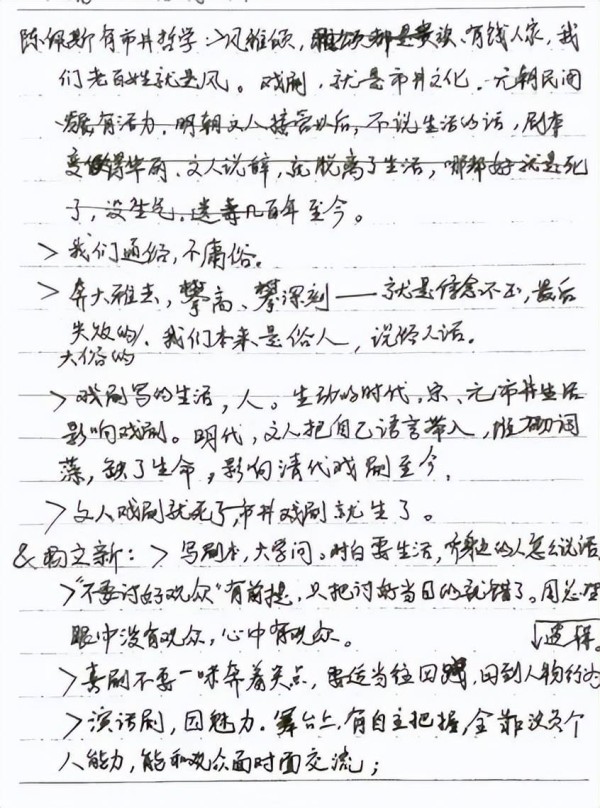 陈佩斯有市井哲学:>风雅颂,雅颂都是贵族、有钱人家,我
们老百姓就是风。戏剧,就是市井文化。元朝民间
有活力,明朝文人接管以后,不说生活的话,剧本
变得华丽、文人说辞,就脱离了生活,哪都好就是死
了,没生气,遗毒几百年至今。
>我们通俗,不庸俗。
>奔大雅去,攀高、攀深刻——就是信念不正,最后
失败的。我们本来是俗人,说俗人话。
大俗的
>戏剧写的生活,人。生动的时代,宋、元市井生活
影响戏剧。明代,文人把自己语言带入,堆砌词
藻,缺了生命,影响清代戏剧至今。
>文人戏剧就死了,市井戏剧就生了。
&杨立新:>写剧本,大学问。对白要生活,听身边的人怎么说话
>"不要讨好观众"有前提,只把讨好当目的就错了。用总理
眼中没有观众,心中有观众。
>喜剧不要一味奔着笑点,要适当往回,回到人物行为
>演话剧,因魅力。舞台上,有自主把握,全靠这个
人能力,能和观众面对面交流;